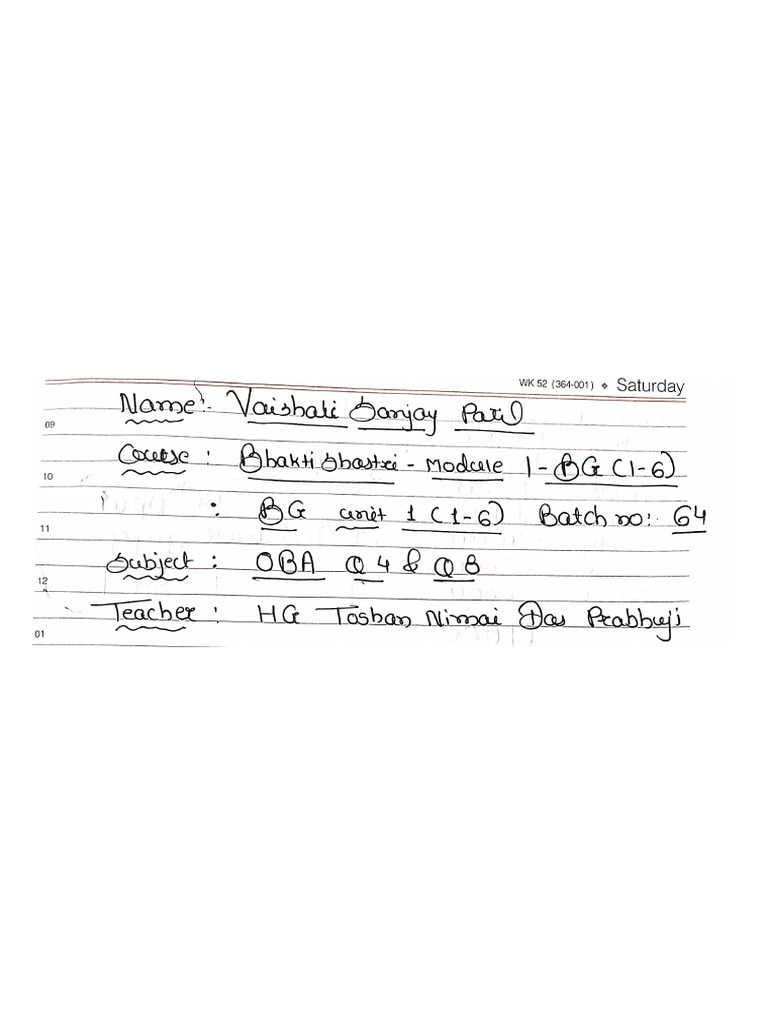 WK 52 (364-001) ❖ Saturday
Name:- Vaishali Sanjay Patil
09
Course : Bhakti Shastri - Module 1 - BG (1-6)
10
: BG unit 1 (1-6) Batch no: 64
11
Subject : OBA Q 4 & Q 8
12
Teacher : HG Toshan Nimai Das Prabhuji
01